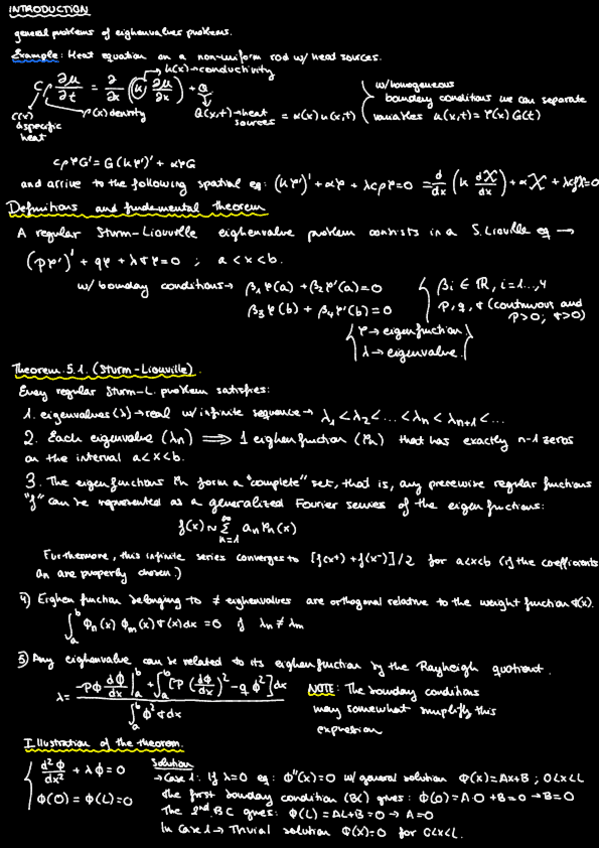 INTRODUCTION
general problems of eighenvalues problems.
Example: Heat equation on a non-uniform rod w/ heat sources.
k(x)→conductivity
cρ ∂u/∂t = ∂/∂x (k ∂u/∂x) + Q
w/homogeneous
boundary conditions we can separate
variables u(x,t)=φ(x)G(t)
c(x) specific heat
ρ(x) density
Q(x,t)→heat sources = α(x)u(x,t)
cρφG' = G(kφ')' + αφG
and arrive to the following spatial eq: (kφ')' + αφ + λcρφ=0 = d/dx (k dX/dx) + αX + λcρX=0
Definitions and fundamental theorem
A regular Sturm-Liouville eighenvalue problem consists in a S. Lioville eq →
(pφ')' + qφ + λσφ=0 ; a<x<b.
w/ bounday conditions→ β₁φ(a) + β₂φ'(a)=0
β₃φ(b) + β₄φ'(b)=0
βi ∈ ℝ, i=1...,4
p, q, σ (continuous and
p>0; σ>0)
φ→eigenfunction
λ→eigenvalue.
Theorem 5.1. (Sturm-Liouville)
Every regular Sturm-L. problem satisfies:
1. eigenvalues(λ)→real w/ infinite sequence→ λ₁<λ₂<...<λn<λn+1<...
2. Each eigenvalue (λn) ⟹ 1 eighenfunction (φn) that has exactly n-1 zeros
on the interval a<x<b.
3. The eigenfunctions φn form a "complete" set, that is, any piecewise regular functions
"f" can be represented as a generalized Fourier series of the eigenfunctions:
f(x)~ ∞Σn=1 an φn(x)
Furthermore, this infinite series converges to [f(x⁺)+f(x⁻)]/2 for a<x<b (if the coefficients
an are properly chosen.)
4) Eighenfunction belonging to ≠ eighenvalues are orthogonal relative to the weight function σ(x).
∫ₐᵇ Φn(x) Φm(x) σ(x)dx =0 if λn≠λm
5) Any eighenvalue can be related to its eighenfunction by the Rayheigh quotient.
λ= (-pΦ dΦ/dx |ₐᵇ + ∫ₐᵇ [p (dΦ/dx)² - qΦ²]dx) / (∫ₐᵇ Φ²σdx)
NOTE: The bounday conditions
may somewhat simplify this
expression
Illustration of the theorem.
d²Φ/dx² + λΦ=0
Φ(0)=Φ(L)=0
Solution
→Case 1: If λ=0 eq: Φ''(x)=0 w/ general solution Φ(x)=Ax+B; 0<x<L
The first bounday condition (BC) gives: Φ(0)=A·0+B=0→B=0
The 2nd BC gives: Φ(L)=AL+B=0→A=0
In Case 1→Trivial solution Φ(x)=0 for 0<x<L.